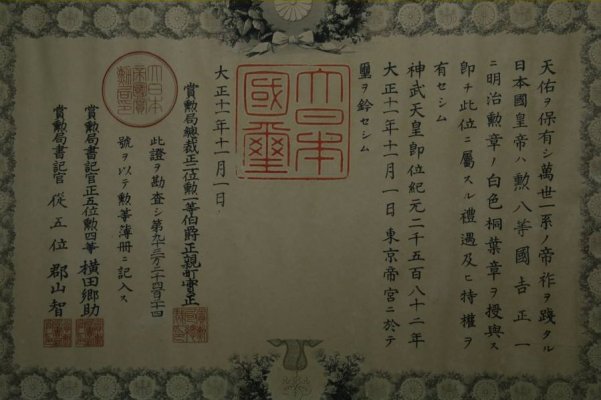 天佑ヲ保有シ萬世一系ノ帝祚ヲ踐タル
日本國皇帝ハ勲八等國吉正一
ニ明治勲章ノ白色桐葉章ヲ授與ス
即チ此位ニ屬スル禮遇及ヒ特權ヲ
有セシム
神武天皇即位紀元二千五百八十二年
大正十一年十一月一日東京帝宮ニ於テ
璽ヲ鈐セシム
大日本國璽
大正十一年十一月一日
賞勲局總裁正二位勲一等伯爵正親町實正
此證ヲ勘査シ第九十三万三千四百二十四
號ヲ以テ勲等簿冊ニ記入ス
賞勲局書記官正五位勲四等 横田郷助
賞勲局書記官 從五位 郡山智